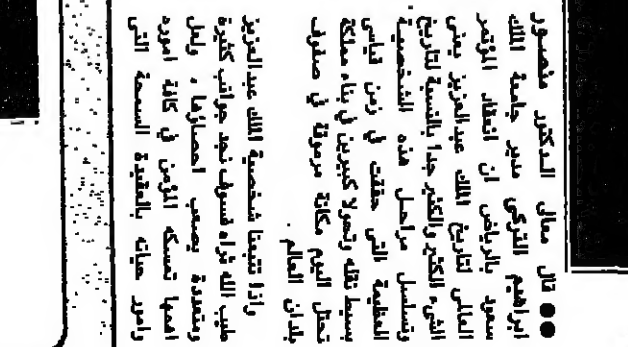 ●● قال معالي الدكتور منصور
ابراهيم التركي مدير جامعة الملك
سعود بالرياض ان انعقاد المؤتمر
العالمي لتاريخ الملك عبدالعزيز يعني
الشيء الكثير والكثير جدا بالنسبة لتاريخ
وتسلسل مراحل هذه الشخصية
العظيمة التي حققت في زمن قياسي
بسيط نقله وتحولا كبيرين في بناء مملكة
تحتل اليوم مكانة مرموقة في صفوف
بلدان العالم .
واذا تتبعنا شخصية الملك عبدالعزيز
طيب الله ثراه فسوف نجد جوانب كثيرة
ومتعددة يصعب احصاؤها ، ولعل
اهمها تمسكه المؤمن في كافة اموره
وامور حياته بالعقيدة السمحة التي